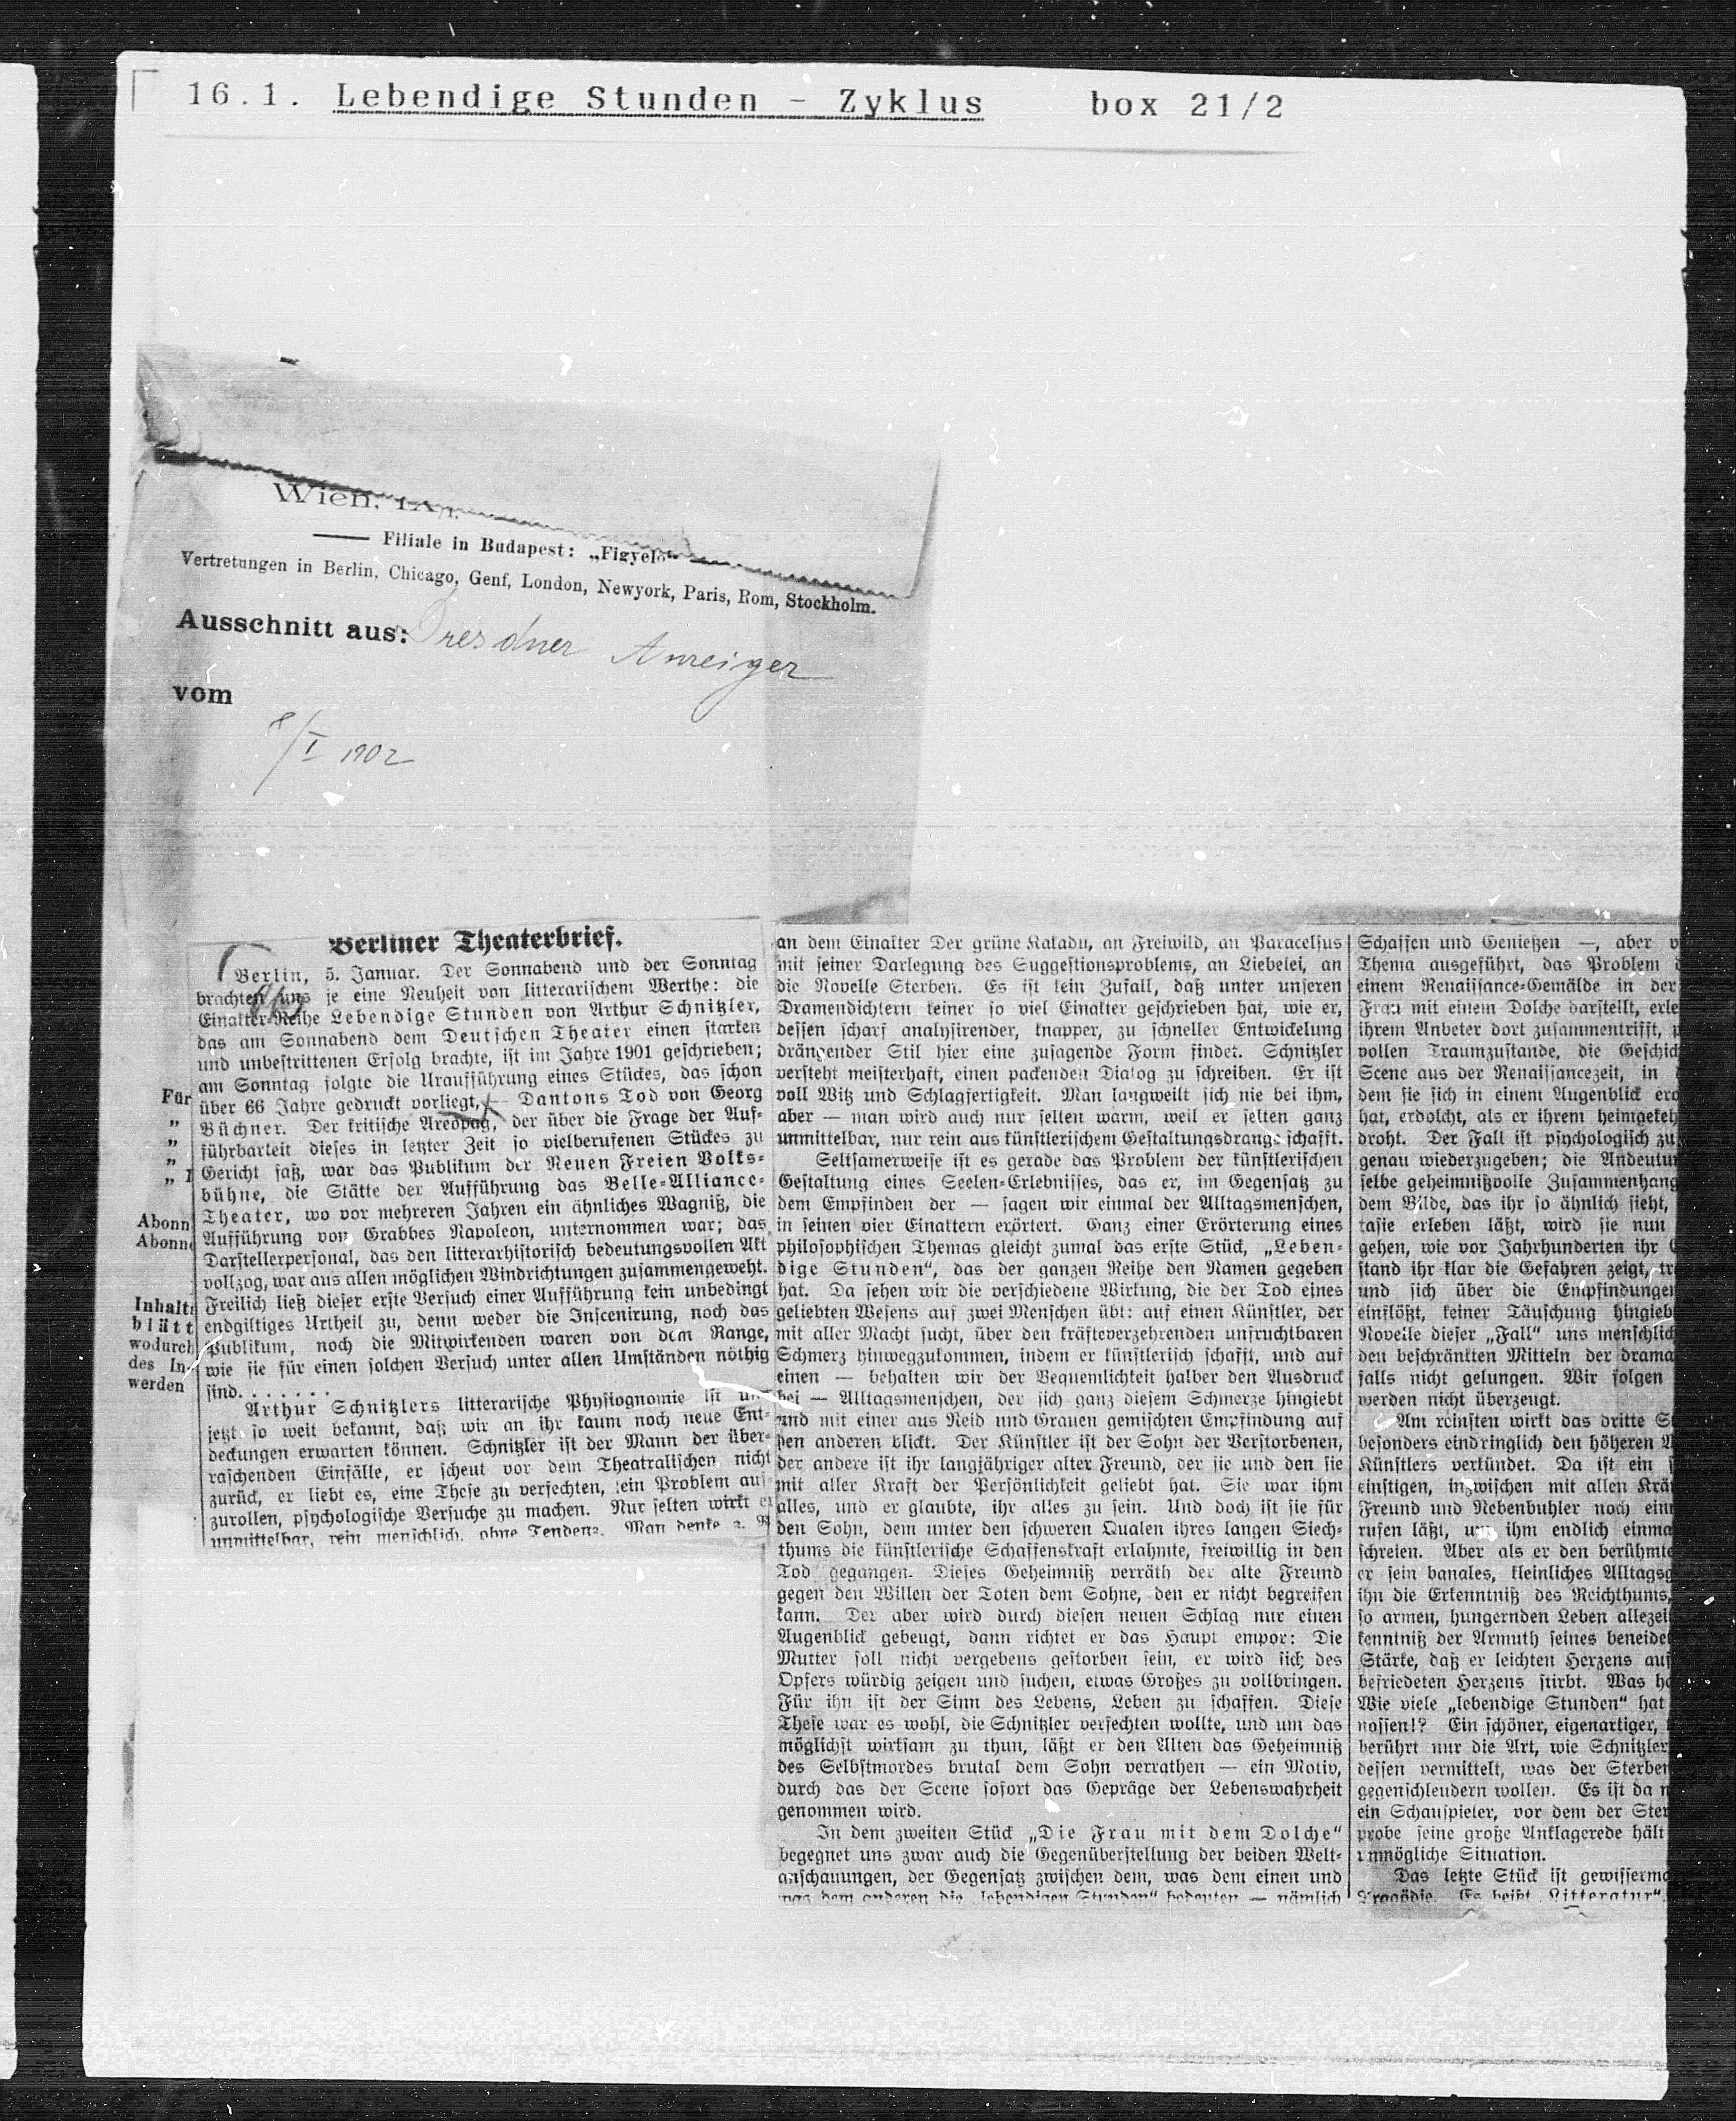 16.1. Lebendige Stunden - Zyklus box 21/2
Wien, IX/1.
Filiale in Budapest: „Figyelő“
Vertretungen in Berlin, Chicago, Genf, London, Newyork, Paris, Rom, Stockholm.
Ausschnitt aus: Dresdner Anzeiger
vom
8/I 1902
Für
„
„
„
„ 1
Abonn
Abonn
Inhalt
blätt
wodurch
des In
werden
Berliner Theaterbrief.
Berlin, 5. Januar. Der Sonnabend und der Sonntag
brachten uns je eine Neuheit von litterarischem Werthe: die
Einakter-Reihe Lebendige Stunden von Arthur Schnitzler,
das am Sonnabend dem Deutschen Theater einen starken
und unbestrittenen Erfolg brachte, ist im Jahre 1901 geschrieben;
am Sonntag folgte die Uraufführung eines Stückes, das schon
über 66 Jahre gedruckt vorliegt, — Dantons Tod von Georg
Büchner. Der kritische Areopag, der über die Frage der Auf-
führbarkeit dieses in letzter Zeit so vielberufenen Stückes zu
Gericht saß, war das Publikum der Neuen Freien Volks-
bühne, die Stätte der Aufführung das Belle-Alliance-
Theater, wo vor mehreren Jahren ein ähnliches Wagniß, die
Aufführung von Grabbes Napoleon, unternommen war; das
Darstellerpersonal, das den litterarhistorisch bedeutungsvollen Akt
vollzog, war aus allen möglichen Windrichtungen zusammengeweht.
Freilich ließ dieser erste Versuch einer Aufführung kein unbedingt
endgiltiges Urtheil zu, denn weder die Inscenirung, noch das
Publikum, noch die Mitwirkenden waren von dem Range,
wie sie für einen solchen Versuch unter allen Umständen nöthig
sind. . . . . . .
Arthur Schnitzlers litterarische Physiognomie ist uns
jetzt so weit bekannt, daß wir an ihr kaum noch neue Ent-
deckungen erwarten können. Schnitzler ist der Mann der über-
raschenden Einfälle, er scheut vor dem Theatralischen nicht
zurück, er liebt es, eine These zu verfechten, ein Problem auf-
zurollen, psychologische Versuche zu machen. Nur selten wirkt er
unmittelbar, rein menschlich, ohne Tendenz. Man denke z. B.
an dem Einakter Der grüne Kakadu, an Freiwild, an Paracelsus
mit seiner Darlegung des Suggestionsproblems, an Liebelei, an
die Novelle Sterben. Es ist kein Zufall, daß unter unseren
Dramendichtern keiner so viel Einakter geschrieben hat, wie er,
dessen scharf analysirender, knapper, zu schneller Entwickelung
drängender Stil hier eine zusagende Form findet. Schnitzler
versteht meisterhaft, einen packenden Dialog zu schreiben. Er ist
voll Witz und Schlagfertigkeit. Man langweilt sich nie bei ihm,
aber — man wird auch nur selten warm, weil er selten ganz
unmittelbar, nur rein aus künstlerischem Gestaltungsdrange schafft.
Seltsamerweise ist es gerade das Problem der künstlerischen
Gestaltung eines Seelen-Erlebnisses, das er, im Gegensatz zu
dem Empfinden der — sagen wir einmal der Alltagsmenschen,
in seinen vier Einaktern erörtert. Ganz einer Erörterung eines
philosophischen Themas gleicht zumal das erste Stück, „Leben-
dige Stunden“, das der ganzen Reihe den Namen gegeben
hat. Da sehen wir die verschiedene Wirkung, die der Tod eines
geliebten Wesens auf zwei Menschen übt: auf einen Künstler, der
mit aller Macht sucht, über den kräfteverzehrenden unfruchtbaren
Schmerz hinwegzukommen, indem er künstlerisch schafft, und auf
einen — behalten wir der Bequemlichkeit halber den Ausdruck
bei — Alltagsmenschen, der sich ganz diesem Schmerze hingiebt
und mit einer aus Neid und Grauen gemischten Empfindung auf
den anderen blickt. Der Künstler ist der Sohn der Verstorbenen,
der andere ist ihr langjähriger alter Freund, der sie und den sie
mit aller Kraft der Persönlichkeit geliebt hat. Sie war ihm
alles, und er glaubte, ihr alles zu sein. Und doch ist sie für
den Sohn, dem unter den schweren Qualen ihres langen Siech-
thums die künstlerische Schaffenskraft erlahmte, freiwillig in den
Tod gegangen. Dieses Geheimniß verräth der alte Freund
gegen den Willen der Toten dem Sohne, den er nicht begreifen
kann. Der aber wird durch diesen neuen Schlag nur einen
Augenblick gebeugt, dann richtet er das Haupt empor: Die
Mutter soll nicht vergebens gestorben sein, er wird sich des
Opfers würdig zeigen und suchen, etwas Großes zu vollbringen.
Für ihn ist der Sinn des Lebens, Leben zu schaffen. Diese
These war es wohl, die Schnitzler verfechten wollte, und um das
möglichst wirksam zu thun, läßt er den Alten das Geheimniß
des Selbstmordes brutal dem Sohn verrathen — ein Motiv,
durch das der Scene sofort das Gepräge der Lebenswahrheit
genommen wird.
In dem zweiten Stück „Die Frau mit dem Dolche“
begegnet uns zwar auch die Gegenüberstellung der beiden Welt-
anschauungen, der Gegensatz zwischen dem, was dem einen und
was dem anderen die „lebendigen Stunden“ bedeuten — nämlich
Schaffen und Genießen —, aber v
Thema ausgeführt, das Problem d
einem Renaissance-Gemälde in der
Frau mit einem Dolche darstellt, erle
ihrem Anbeter dort zusammentrifft, p
vollen Traumzustande, die Geschich
Scene aus der Renaissancezeit, in
dem sie sich in einem Augenblick ero
hat, erdolcht, als er ihrem heimgekeh
droht. Der Fall ist psychologisch zu
genau wiederzugeben; die Andeutun
selbe geheimnißvolle Zusammenhang
dem Bilde, das ihr so ähnlich sieht,
tasie erleben läßt, wird sie nun
gehen, wie vor Jahrhunderten ihr
stand ihr klar die Gefahren zeigt, tr
und sich über die Empfindungen
einflößt, keiner Täuschung hingieb
Novelle dieser „Fall“ uns menschlich
den beschränkten Mitteln der drama
falls nicht gelungen. Wir folgen
werden nicht überzeugt.
Am reinsten wirkt das dritte S
besonders eindringlich den höheren
Künstlers verkündet. Da ist ein
einstigen, inzwischen mit allen Krä
Freund und Nebenbuhler noch ein
rufen läßt, um ihm endlich einma
schreien. Aber als er den berühmte
er sein banales, kleinliches Alltags
ihn die Erkenntniß des Reichthums,
so armen, hungernden Leben allezei
kenntniß der Armuth seines beneide
Stärke, daß er leichten Herzens auf
befriedeten Herzens stirbt. Was ha
Wie viele „lebendige Stunden“ hat
nossen!? Ein schöner, eigenartiger,
berührt nur die Art, wie Schnitzler
dessen vermittelt, was der Sterben
gegenschleudern wollen. Es ist da n
ein Schauspieler, vor dem der Ster
probe seine große Anklagerede hält
unmögliche Situation.
Das letzte Stück ist gewisserma
Tragödie. Es heißt „Litteratur“.